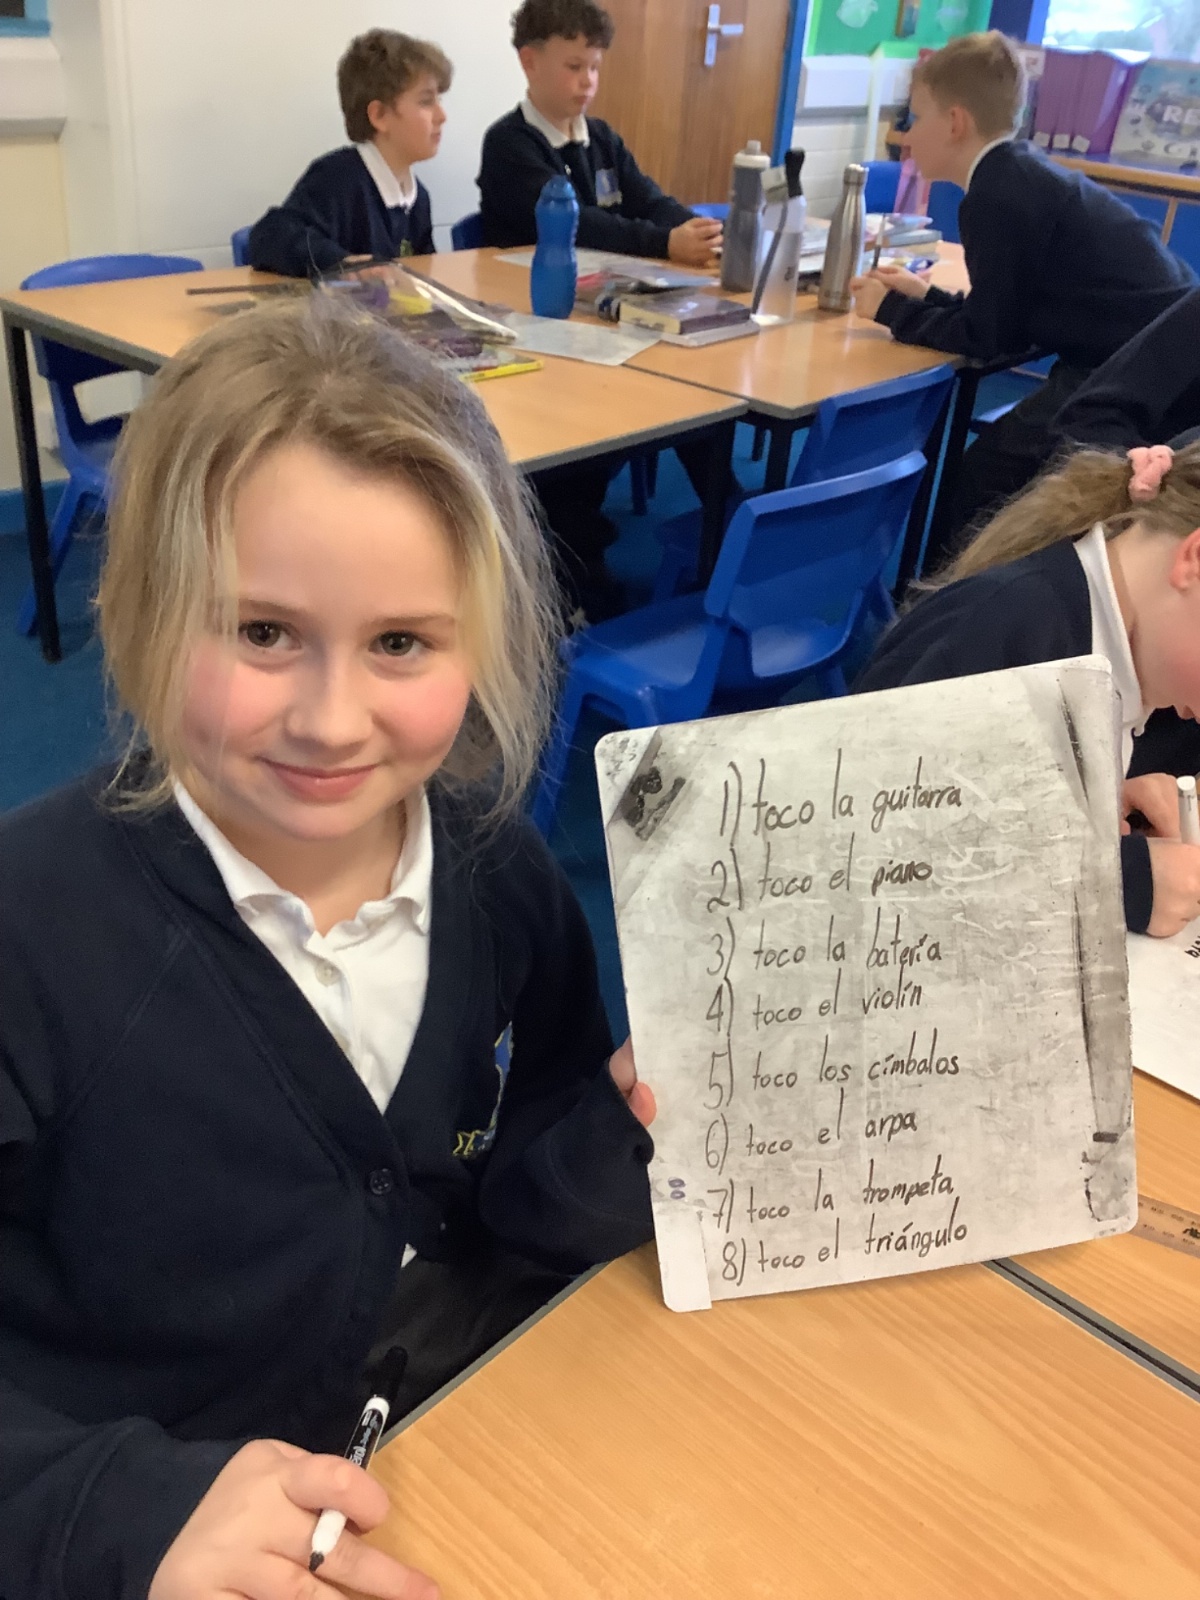 1) toco la guitarra
2) toco el piano
3) toco la batería
4) toco el violín
5) toco los címbalos
6) toco el arpa
7) toco la trompeta
8) toco el triángulo